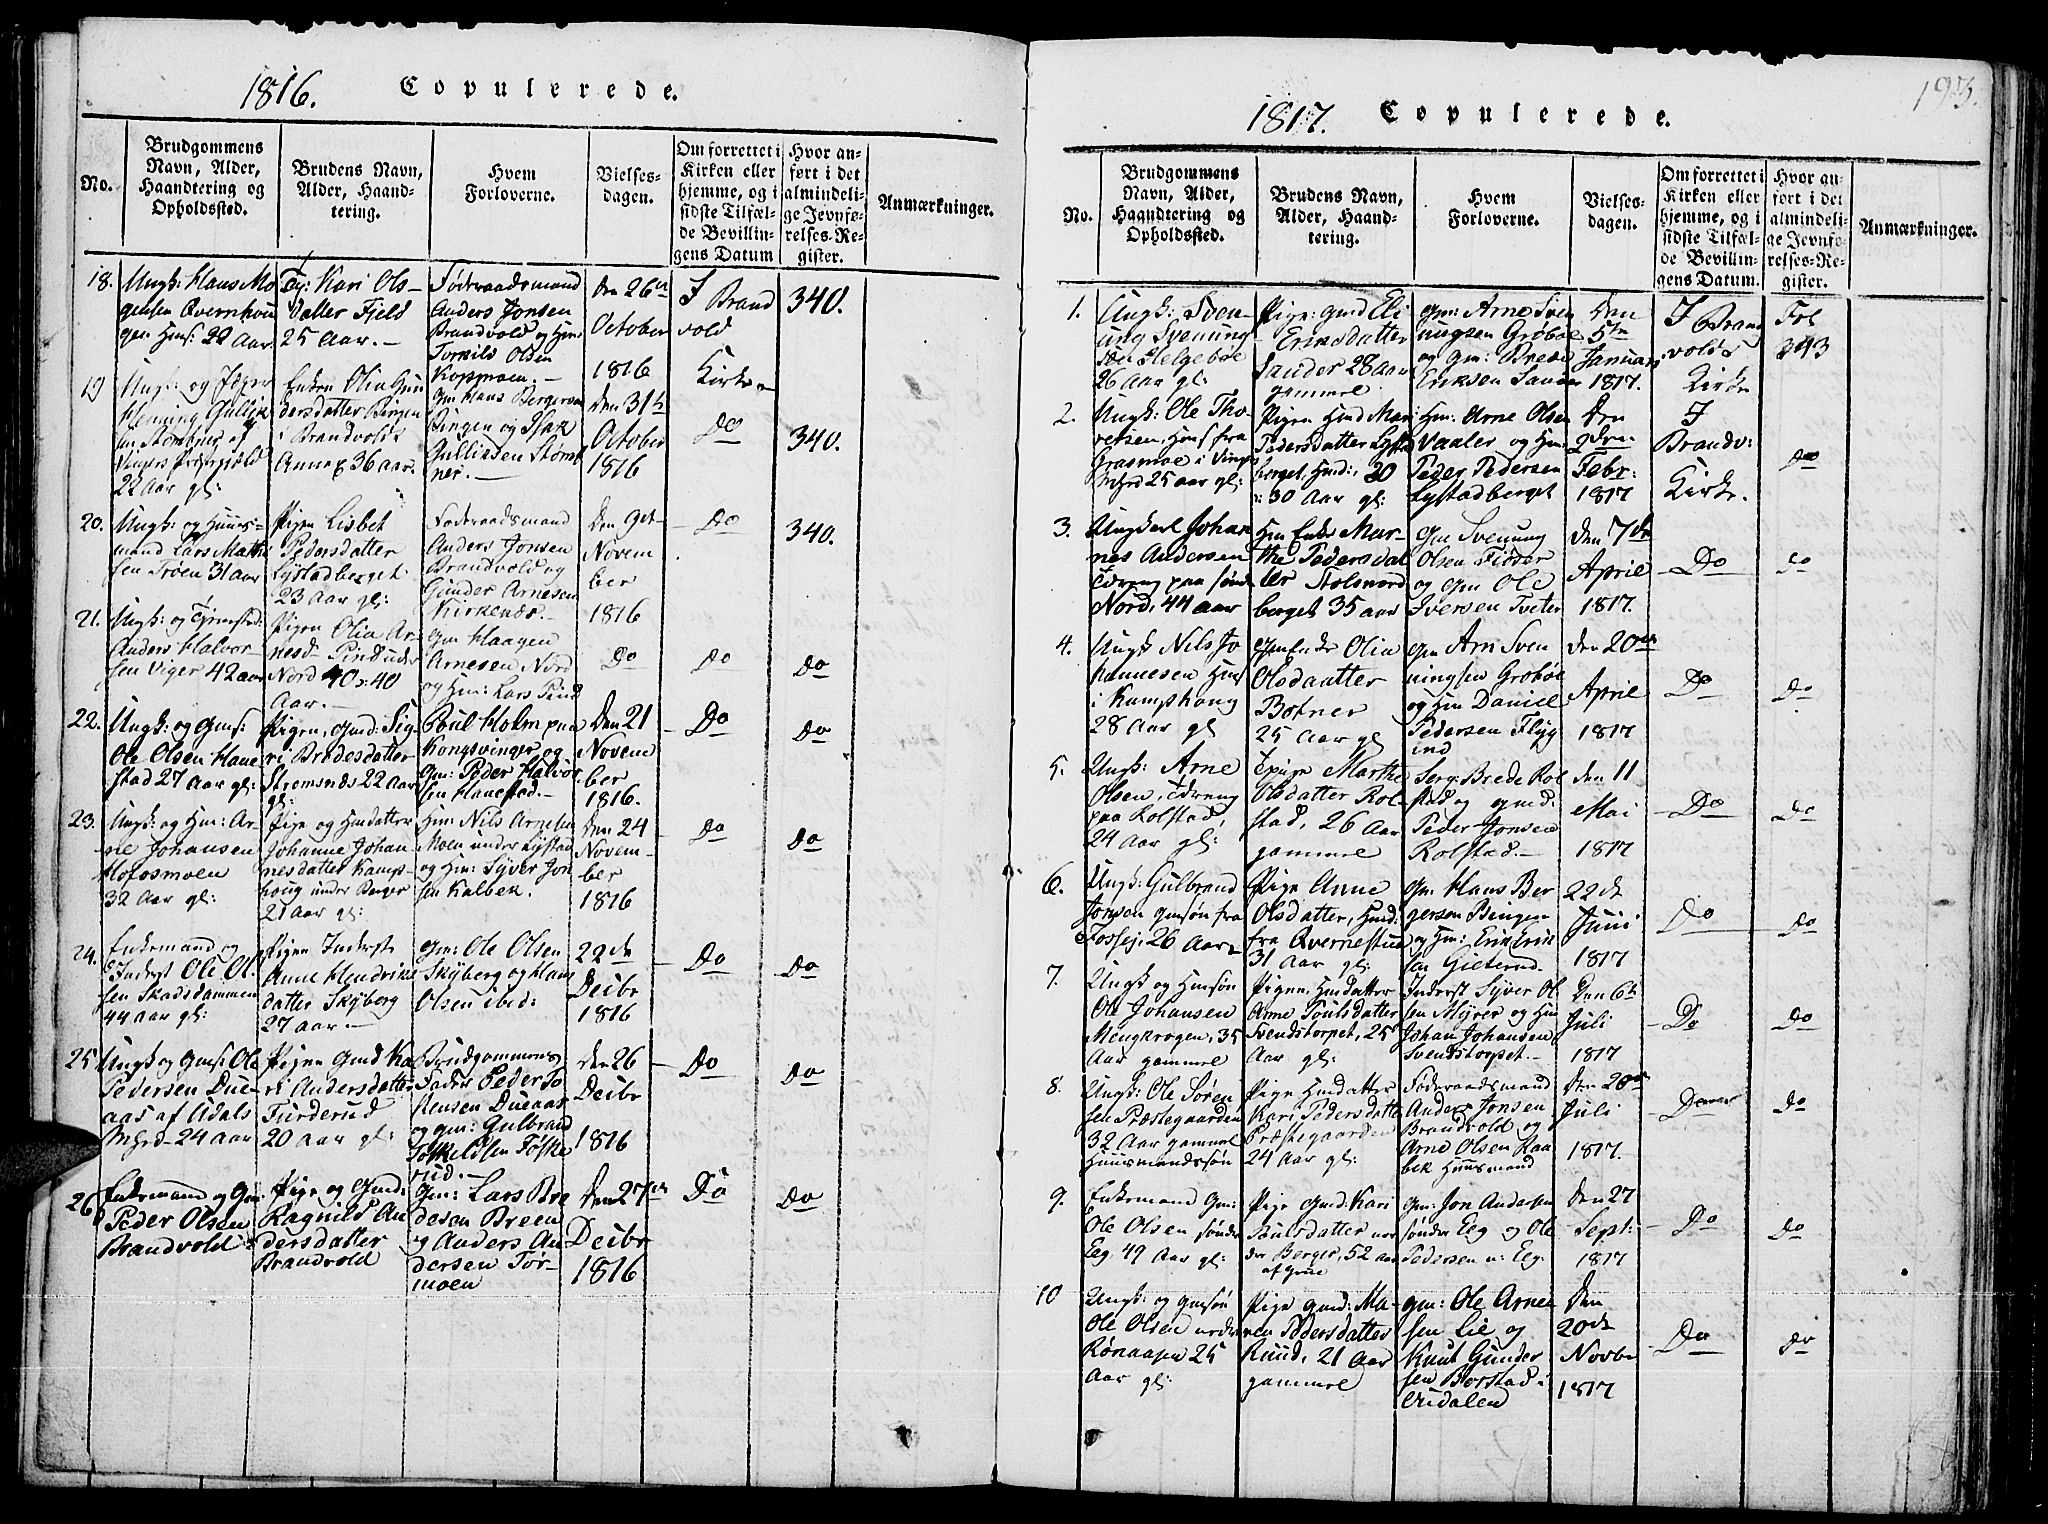 1816. Copulerede.
No.
Brudgommens
Navn, Alder,
Haandtering og
Opholdssted.
Brudens Navn,
Alder, Haand-
tering.
Hvem
Forloverne.
Vielses-
dagen.
Om forrettet i
Kirken eller
hjemme, og i
sidste Tilfæl-
de Bevillin-
gens Datum
Hvor an-
ført i det
almindeli-
ge Jevnfø-
relses-Re-
gister.
Anmærkninger.
18.
Ungk: Hans Mo
gensen Overnhou
gen Huus: 22 Aar
Kari Ols-
datter Fjeld
25 Aar.-
Føderaadsmand
Anders Jonsen
Brandvold og Hm:
Torkils Olsen
Koppmoen.-
Den 26de
October
1816
I Brand
vold
Kirke
340.
19
Ungk: og
Henning Gullik
sen af
Vingers
22 Aar gl:
Enken Olia Gun
dersdatter Bingen
i Brandvolds
Annex 36 aar.
Gm Hans Bergersen
Bingen og Isak
Gulliksen
ner.-
Den 31te
October
1816
Do
340.
20.
Ungk: og Huus-
mand Lars Math
sen Troen 31 aar
Pigen Lisbet
Pedersdatter
Lystadberget
23 Aar gl:
Føderaadsmand
Anders Jonsen
Brandvold og
Gunder Arnesen
Kirkenær.
Den 9de
Novem
ber
1816
Do
340.
21.
Ungk: og
Anders Halvor-
sen Viger 42 aar
Pigen Olia Ar-
nesd: under
Nord 40 :40
Aar.-
Gm Haagen
Arnesen Nord
og Hm: Lars
Do
Do
Do
22.
Ungk: og Gms:
Ole Olsen Hane
stad 27 Aar gl:
Pigen, Gmd: Sig-
ri Brodesdatter
Stromsnes 22 Aar
gl:
Poul Holm paa
Kongsvinger og
Gm: Peder Halvor
sen Hanestad.-
Den 21
Novem
ber
1816.
Do
Do
23.
Ungk: og Hm: Ar-
ne Johansen
Mofosmoen
32 Aar gl:
Pige og Hmdatter
Johanne Johan
nesdatter Kamp-
houg under Berger
21 Aar gl:
Hm: Nils Arnesen
Moen under Lystad
og Hm: Syver Jon
sen Kalbek.
Den 24
Novem-
ber
1816
Do
Do
24.
Enkemand og
Inderst Ole Ol-
sen Skadsdammen
44 aar gl:
Pigen Inderst
Anne Hendriks
datter Skyberg
27 aar.-
Gm: Ole Olsen
Skyberg og Hans
Olsen ibid:
22de
Decbr
1816
Do
Do
25
Ungk og Gms: Ole
Pedersen Due-
aas af Adals
Bygd 24 aar
Pigen Gmd Ka
ri Andersdatter
Furderud
20 Aar gl:
Brudgommens
Fader Peder Jo
hansen Dueaas
og Gm: Gulbrand
Toskeldsen Foske
rud.-
Den 26
Decbr
1816
Do
Do
26
Enkemand og Gm:
Peder Olsen
Brandvold
Pige og Gmd:
Ragnild An
dersdatter
Brandvold
Gm: Lars Bre
desen Breen
og Anders An
dersen Tor-
moen
Den 27de
Decbr
1816
Do
Do
193.
1817. Copulerede.
No.
Brudgommens
Navn, Alder,
Haandtering og
Opholdssted.
Brudens Navn,
Alder, Haand-
tering.
Hvem
Forloverne.
Vielses-
dagen.
Om forrettet i
Kirken eller
hjemme, og i
sidste Tilfæl-
de Bevillin-
gens Datum.
Hvor an-
ført i det
almindeli-
ge Jevnfø-
relses-Re-
gister.
Anmærkninger.
1.
Ungk: Sven-
ung Svenung-
sen Helgeboe
26 Aar gl:
Pige: Gmd Eli
Eriksdatter
Sander 28 Aar
gammel
Gm: Arne Sven
ungsen Grøbøe
og Gm: Brede
Eriksen Sander
Den
5te
Januar
1817.
I Brand
volds
Kirke
Fol
343
2.
Ungk: Ole Tho-
resen, Hms fra
Grasmoe i Vinger
25 aar gl:
Pigen Hmd Mari
Pedersdatter Lysta
berget, Hmd: 30
: 30 Aar gl:
Hm: Arne Olsen
Vaaler og Hm:
Peder Pedersen
Lystadberget
Den
2den
Febr:
1817
I
Brandv:
Kirke.
Do
3.
Ungkarl Johan
nes Andersen
Tdreng paa sønd
Nord, 44 aar
Hm Enke Mar-
the Pedersdat
ter Stolsnord
berget 35 aar
Gm Svenung
Olsen Fioser
og Gm Ole
Iversen Tveter
Den 7de
April
1817.
Do
Do
4.
Ungk Nils Jo
hannesen Hms
i Kamphoug
28 Aar gl
Enke Olia
Olsdaatter
Botner
25 Aar gl
Gm Arn Sven
ningsen Grøbøe
og Hm Daniel
Pedersen Flyg
ind
Den 20de
April
1817
Do
Do
5.
Ungk: Arne
Olsen, Tdreng
paa Rolstad,
24 Aar gl:
Tpige Marthe
Olsdatter Rol-
stad, 26 Aar
gammel
Serg: Brede Rol
stad og Gmd:
Peder Jonsen
Rolstad.-
Den 11
Mai
1817
Do
Do
6.
Ungk: Gulbrand
Jonsen Gmsøn fra
Fossej, 26 Aar
Pige Anne
Olsdatter, Hmd:
fra Qvernestua
31 Aar gl:
Gm: Hans Ber
gersen Bingen
og Hm: Erik Erik
sen Gieterud.
22de
Juni
1817
Do
Do
7.
Ungk og Hmsøn
Ole Johansen
Mengkrogen, 35
Aar gammel
Pigen, Hmdatter
Anne Poulsdatter
Svendstorpet, 25
Aar gl:
Inderst Syver Ol
sen Myrer og Hm
Johan Johansen
Svendstorpet.-
Den 6te
Juli
1817
Do
Do
8.
Ungk: Ole Søren
sen Præstegaarden
32 Aar gammel
Huusmandssøn
Pige Hmdatter
Kari Pedersdatter
Præstegaarden
24 Aar gl:
Føderaadsmand
Anders Jonsen
Brandvold og
Arne Olsen Raa
bek Huusmand
Den 20de
Juli
1817.
Do
9.
Enkemand Gm:
Ole Olsen søndr
Eeg 49 Aar gl:
Pige Gmd: Kari
Poulsdatter nor
dre Berger, 52 aar
af Grue
Gm: Jon Andersen
søndre Eeg og Ole
Pedersen n: Eeg.
Den 27
Sept:
1817
Do
Do
10
Ungk: og Gmsøn
Ole Olsen nedre
Rønaasen 25
Aar gl:
Pige Gmd: Ma-
ren Pedersdatter
Ruud, 21 Aar
gammel
Gm: Ole Arne
sen Lie og
Knut Gunder
sen Borstad i
Urdalen
Den
20de
Novbr
1817
Do
Do